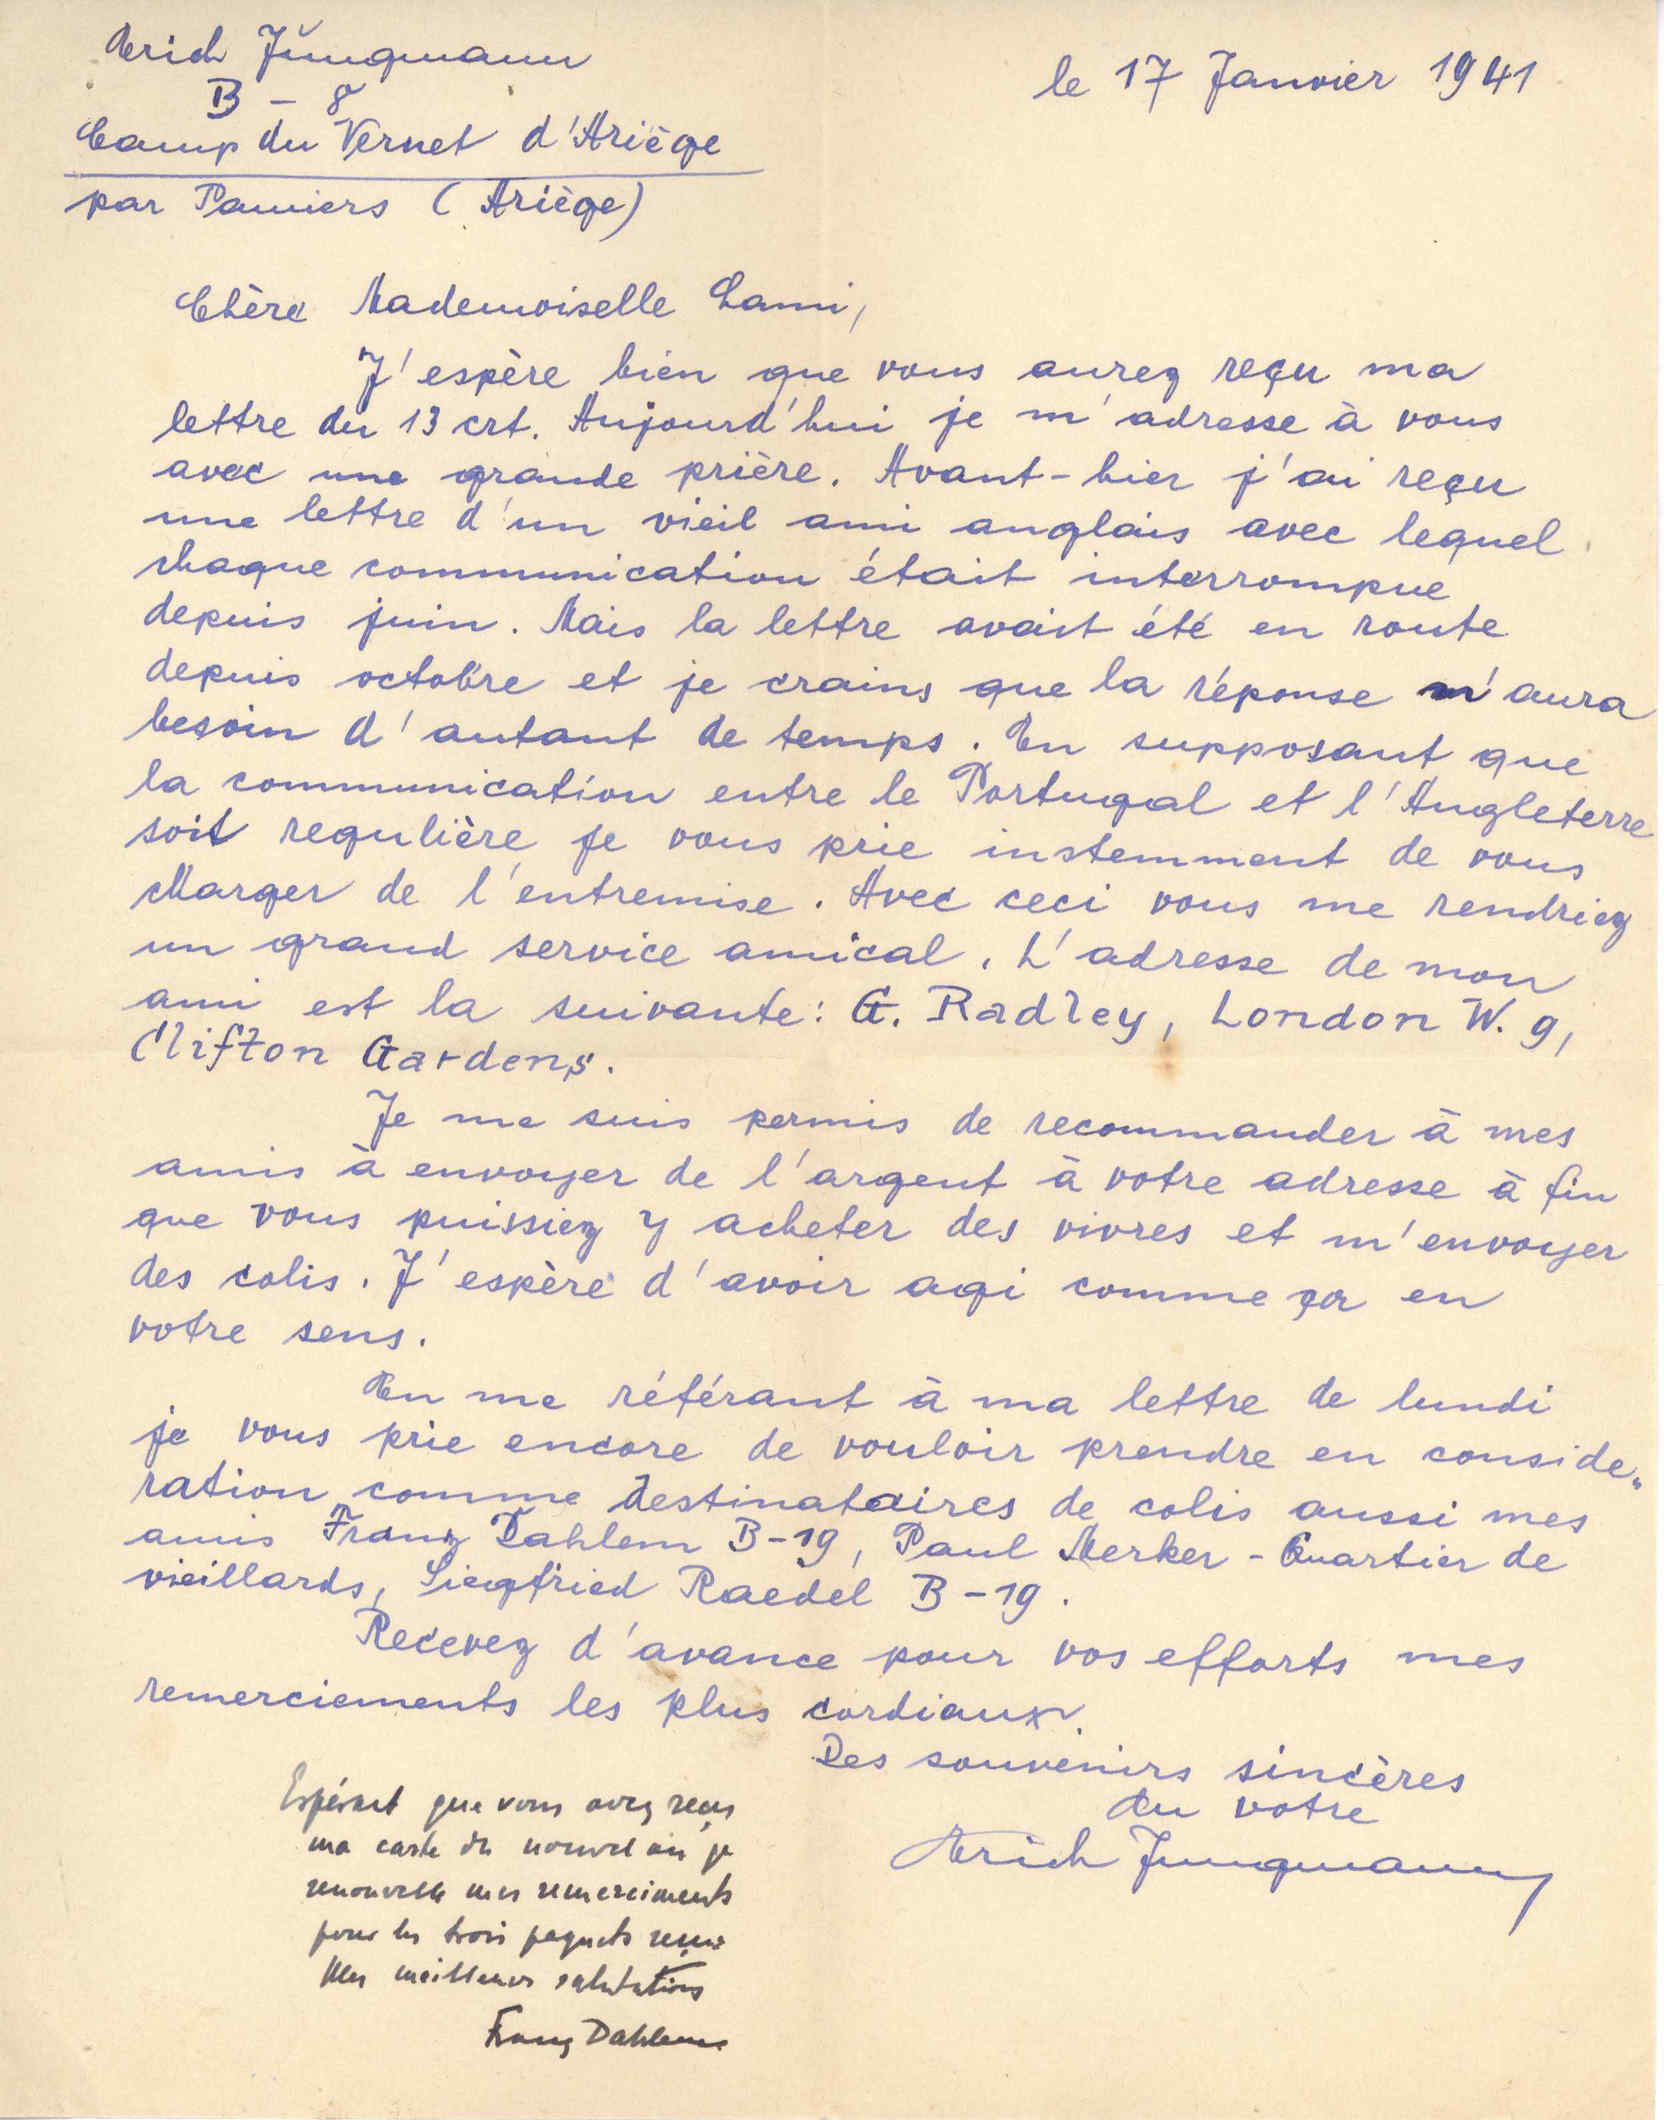 Erich Jungmann
B – 8
Camp du Vernet d'Ariège
par Pamiers (Ariège)
le 17 Janvier 1941
Chère Mademoiselle Lami,
J'espère bien que vous aurez reçu ma
lettre du 13 crt. Aujourd'hui je m'adresse à vous
avec une grande prière. Avant-hier j'ai reçu
une lettre d'un vieil ami anglais avec lequel
chaque communication était interrompue
depuis juin. Mais la lettre avait été en route
depuis octobre et je crains que la réponse n'aura
besoin d'autant de temps. En supposant que
la communication entre le Portugal et l'Angleterre
soit regulière je vous prie instemment de vous
charger de l'entremise. Avec ceci vous me rendriez
un grand service amical. L'adresse de mon
ami est la suivante: G. Radley, London W. 9,
Clifton Gardens.
Je me suis permis de recommander à mes
amis à envoyer de l'argent à votre adresse à fin
que vous puissiez y acheter des vivres et m'envoyer
des colis. J'espère d'avoir agi comme ça en
votre sens.
En me référant à ma lettre de lundi
je vous prie encore de vouloir prendre en conside-
ration comme destinataires de colis aussi mes
amis Franz Dahlem B-19, Paul Merker - Quartier de
vieillards, Siegfried Raedel B-19.
Recevez d'avance pour vos efforts mes
remerciements les plus cordiaux.
Des souvenirs sincères
du votre
Erich Jungmann
Espérant que vous avez reçu
ma carte de nouvel an je
renouvelle mes remerciments
pour les trois paquets reçus
Mes meilleures salutations
Franz Dahlem